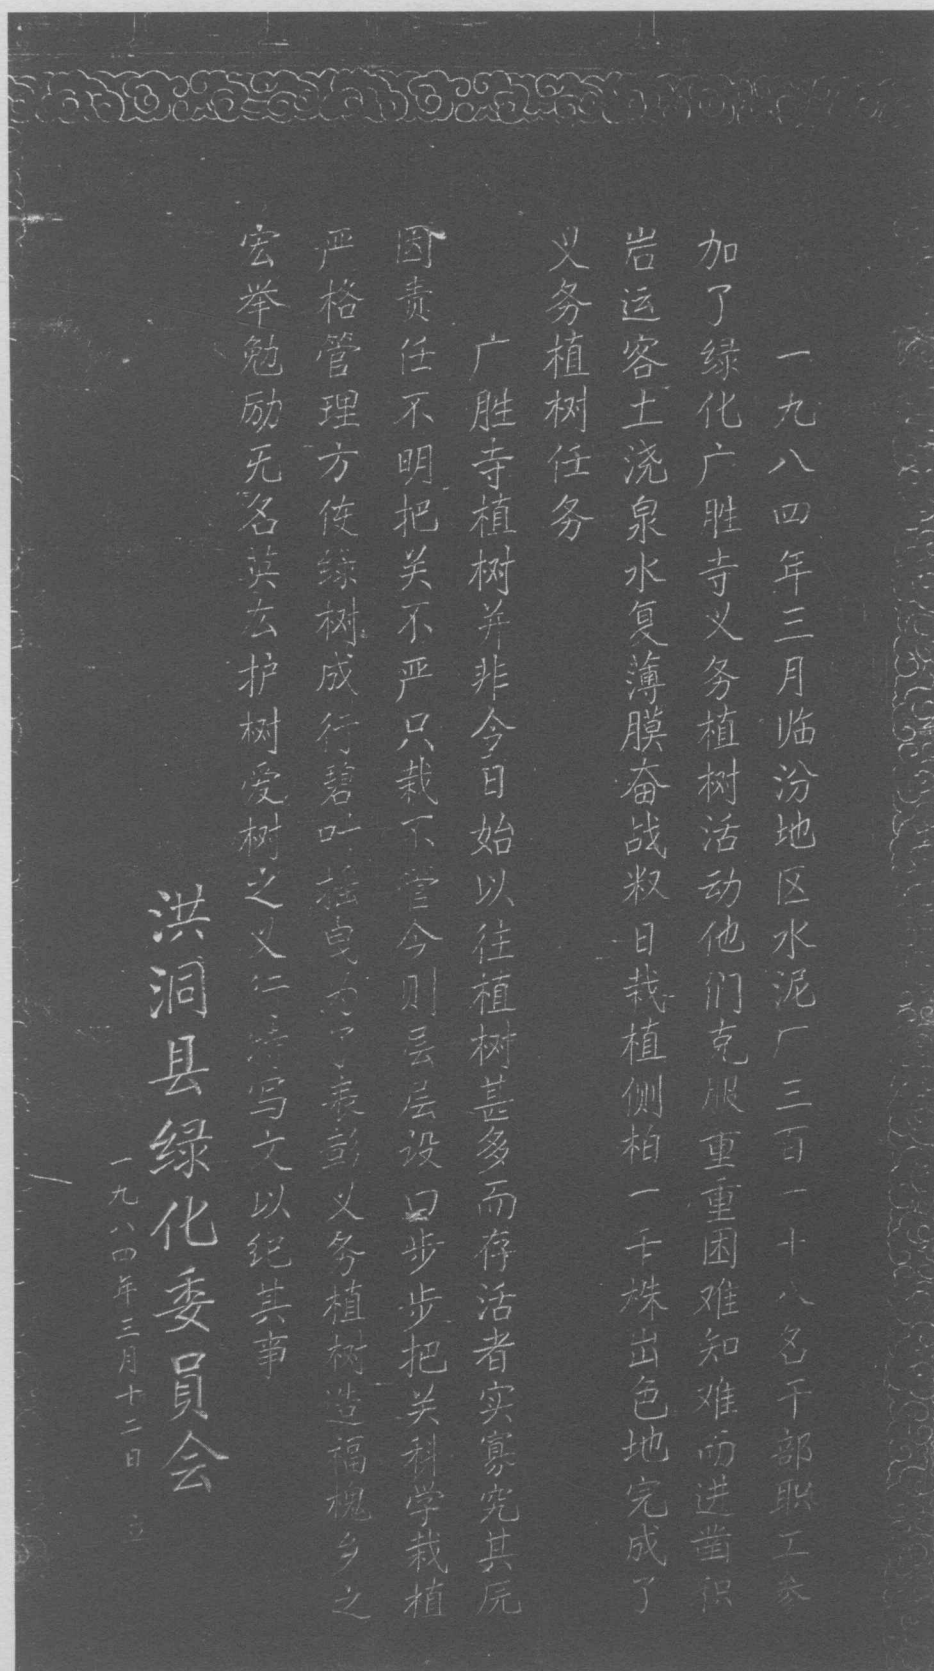 一九八四年三月临汾地区水泥厂三百一十八名干部职工参
加了绿化广胜寺义务植树活动他们克服重重困难知难而进凿积
岩运客土浇泉水复薄膜奋战数日栽植侧柏一千株出色地完成了
义务植树任务
广胜寺植树并非今日始以往植树甚多而存活者实寡究其原
因责任不明把关不严只栽不管今则层层设口步步把关科学栽植
严格管理方使绿树成行碧叶摇曳为了表彰义务植树造福槐乡之
宏举勉励无名英雄护树爱树之义写文以纪其事
洪洞县绿化委員会
一九八四年三月十二日 立